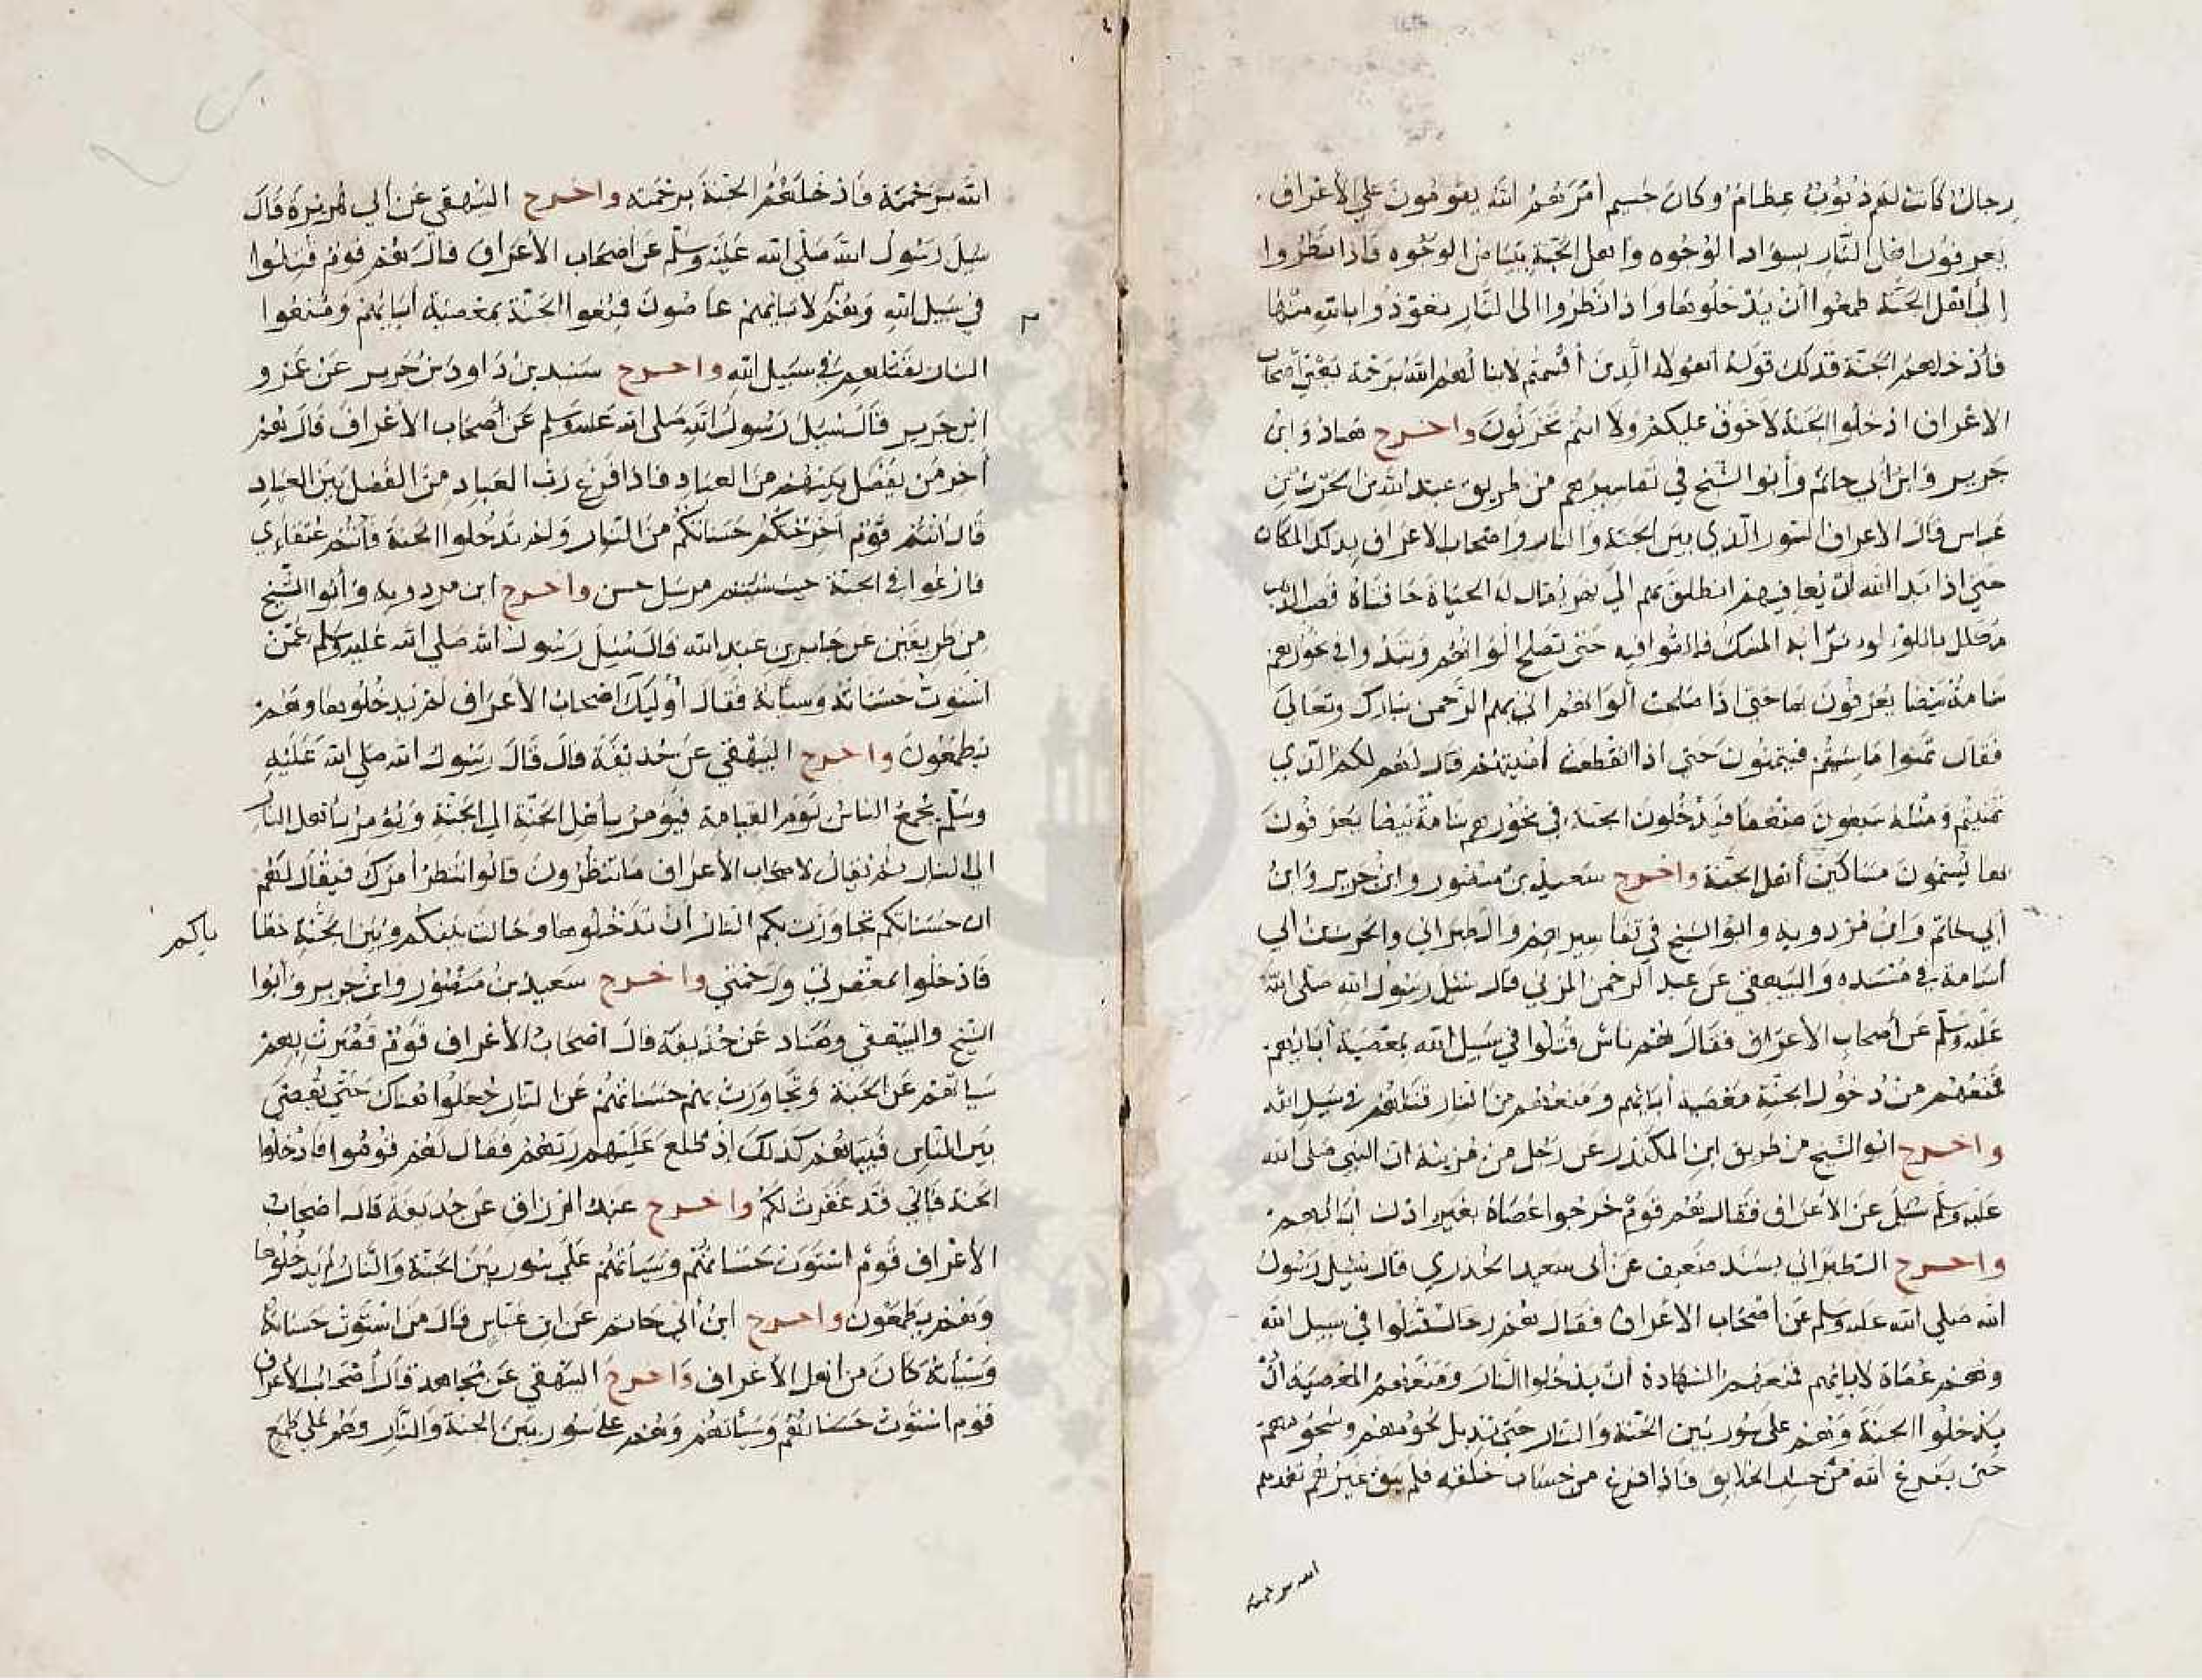 رجال كانت لهم ذنوب عظام وكان جسيم أمرهم الله يقومون على الأعراف
يعرفون اهل النار بسواد الوجوه واهل الجنة ببياض الوجوه فاذا نظروا
الى أهل الجنة طمعوا أن يدخلوها واذا نظروا الى النار تعوذوا بالله منها
فأدخلهم الجنة فذلك قوله أهولاء الذين أقسمتم لا ينالهم الله برحمة يعني أصحاب
الأعراف ادخلوا الجنة لا خوف عليكم ولا انتم تحزنون واخرج هناد وابن
جرير وابن أبي حاتم وأبو الشيخ في تفاسيرهم من طريق عبد الله بن الحرث بن
عباس قال الاعراف السور الذي بين الجنة والنار واصحاب الاعراف بذلك المكان
حتى اذا بدا الله ان يعافيهم انطلق بهم الى نهر يقال له الحياة حافتاه قصب الذهب
مكلل باللؤلؤ ترابه المسك فالقوا فيه حتى تصلح الوانهم وتبدوا في نحورهم
شامة بيضا يعرفون بها حتى اذا صلحت ألوانهم اتى بهم الرحمن تبارك وتعالى
فقال تمنوا ما شئتم فيتمنون حتى اذا انقطعت أمنيتهم قال لهم لكم الذي
تمنيتم ومثله سبعون ضعفا فيدخلون الجنة في نحورهم شامة بيضا يعرفون
بها يسمون مساكين أهل الجنة واخرج سعيد بن منصور وابن جرير وابن
أبي حاتم وابن مردويه وابو الشيخ في تفاسيرهم والطبراني والحرث بن أبي
أسامة في مسنده والبيهقي عن عبد الرحمن المزني قال سئل رسول الله صلى الله
عليه وسلم عن أصحاب الأعراف فقال هم ناس قتلوا في سبيل الله بمعصية أبائهم
فمنعهم من دخول الجنة معصية أبائهم ومنعهم من النار قتلهم في سبيل الله
واخرج ابو الشيخ من طريق ابن المكندر عن رجل من مزينة ان النبي صلى الله
عليه وسلم سئل عن الأعراف فقال هم قوم خرجوا عصاة بغير اذن أبائهم
واخرج الطبراني بسند ضعيف عن أبى سعيد الخدري قال سئل رسول
الله صلي الله عليه وسلم عن أصحاب الاعراف فقال هم رجال قتلوا في سبيل الله
وهم عصاة لابائهم فمنعهم الشهادة أن يدخلوا النار ومنعهم المعصية أن
يدخلوا الجنة وهم على سور بين الجنة والنار حتى تذبل لحومهم وشحومهم
حتى يفرغ الله من حساب الخلايق فاذا فرغ من حساب خلقه فلم يبق غيرهم تغمدهم
الله برحمته
الله برحمة فادخلهم الجنة برحمته واخرج البيهقي عن أبي هريرة قال
سئل رسول الله صلى الله عليه وسلم عن أصحاب الأعراف قال هم قوم قتلوا
في سبيل الله وهم لابائهم عاصون فمنعوا الجنة بمعصية أبائهم ومنعوا
النار بقتلهم في سبيل الله واخرج سنيد بن داود بن جرير عن عمرو
ابن جرير قال سئل رسول الله صلى الله عليه وسلم عن أصحاب الأعراف قال هم
أخر من يفصل بينهم من العباد فاذا فرغ رب العباد من الفصل بين العباد
قال انتم قوم اخرجتكم حسناتكم من النار ولم تدخلوا الجنة فأنتم عتقاءي
فارعوا في الجنة حيث شئتم مرسل حسن واخرج ابن مردويه وأبوا الشيخ
من طريقين عن جابر بن عبد الله قال سئل رسول الله صلي الله عليه وسلم عمن
استوت حسناته وسيأته فقال أوليك اصحاب الأعراف لم يدخلوها وهم
يطمعون واخرج البيهقي عن حذيفة قال قال رسول الله صلى الله عليه
وسلم يجمع الناس يوم القيامة فيؤمر بأهل الجنة الى الجنة ويؤمر بأهل النار
الى النار ثم يقال لاصحاب الأعراف ما تنتظرون قالوا ننتظر أمرك فيقال لهم
ان حسناتكم تجاوزت بكم النار ان تدخلوها وحالت بينكم وبين الجنة خطا
ياكم
فادخلوا بمغفرتي ورحمتي واخرج سعيد بن منصور وابن جرير وأبوا
الشيخ والبيهقي وهناد عن حذيفة قال اصحاب الأعراف قوم قصرت بهم
سيأتهم عن الجنة وتجاوزت بهم حسناتهم عن النار جعلوا هناك حتى يقضى
بين الناس فبينا هم كذلك إذ طلع عليهم ربهم فقال لهم قوموا فادخلوا
الجنة فاني قد غفرت لكم واخرج عبد الرزاق عن حذيفة قال اصحاب
الأعراف قوم استوت حسناتهم وسيأتهم على سور بين الجنة والنار لم يدخلوها
وهم يطمعون واخرج ابن أبي حاتم عن ابن عباس قال من استوت حسناته
وسيأته كان من اهل الأعراف واخرج البيهقي عن مجاهد قال أصحاب الأعراف
قوم استوت حسناتهم وسيأتهم وهم على سور بين الجنة والنار وهم على طمع